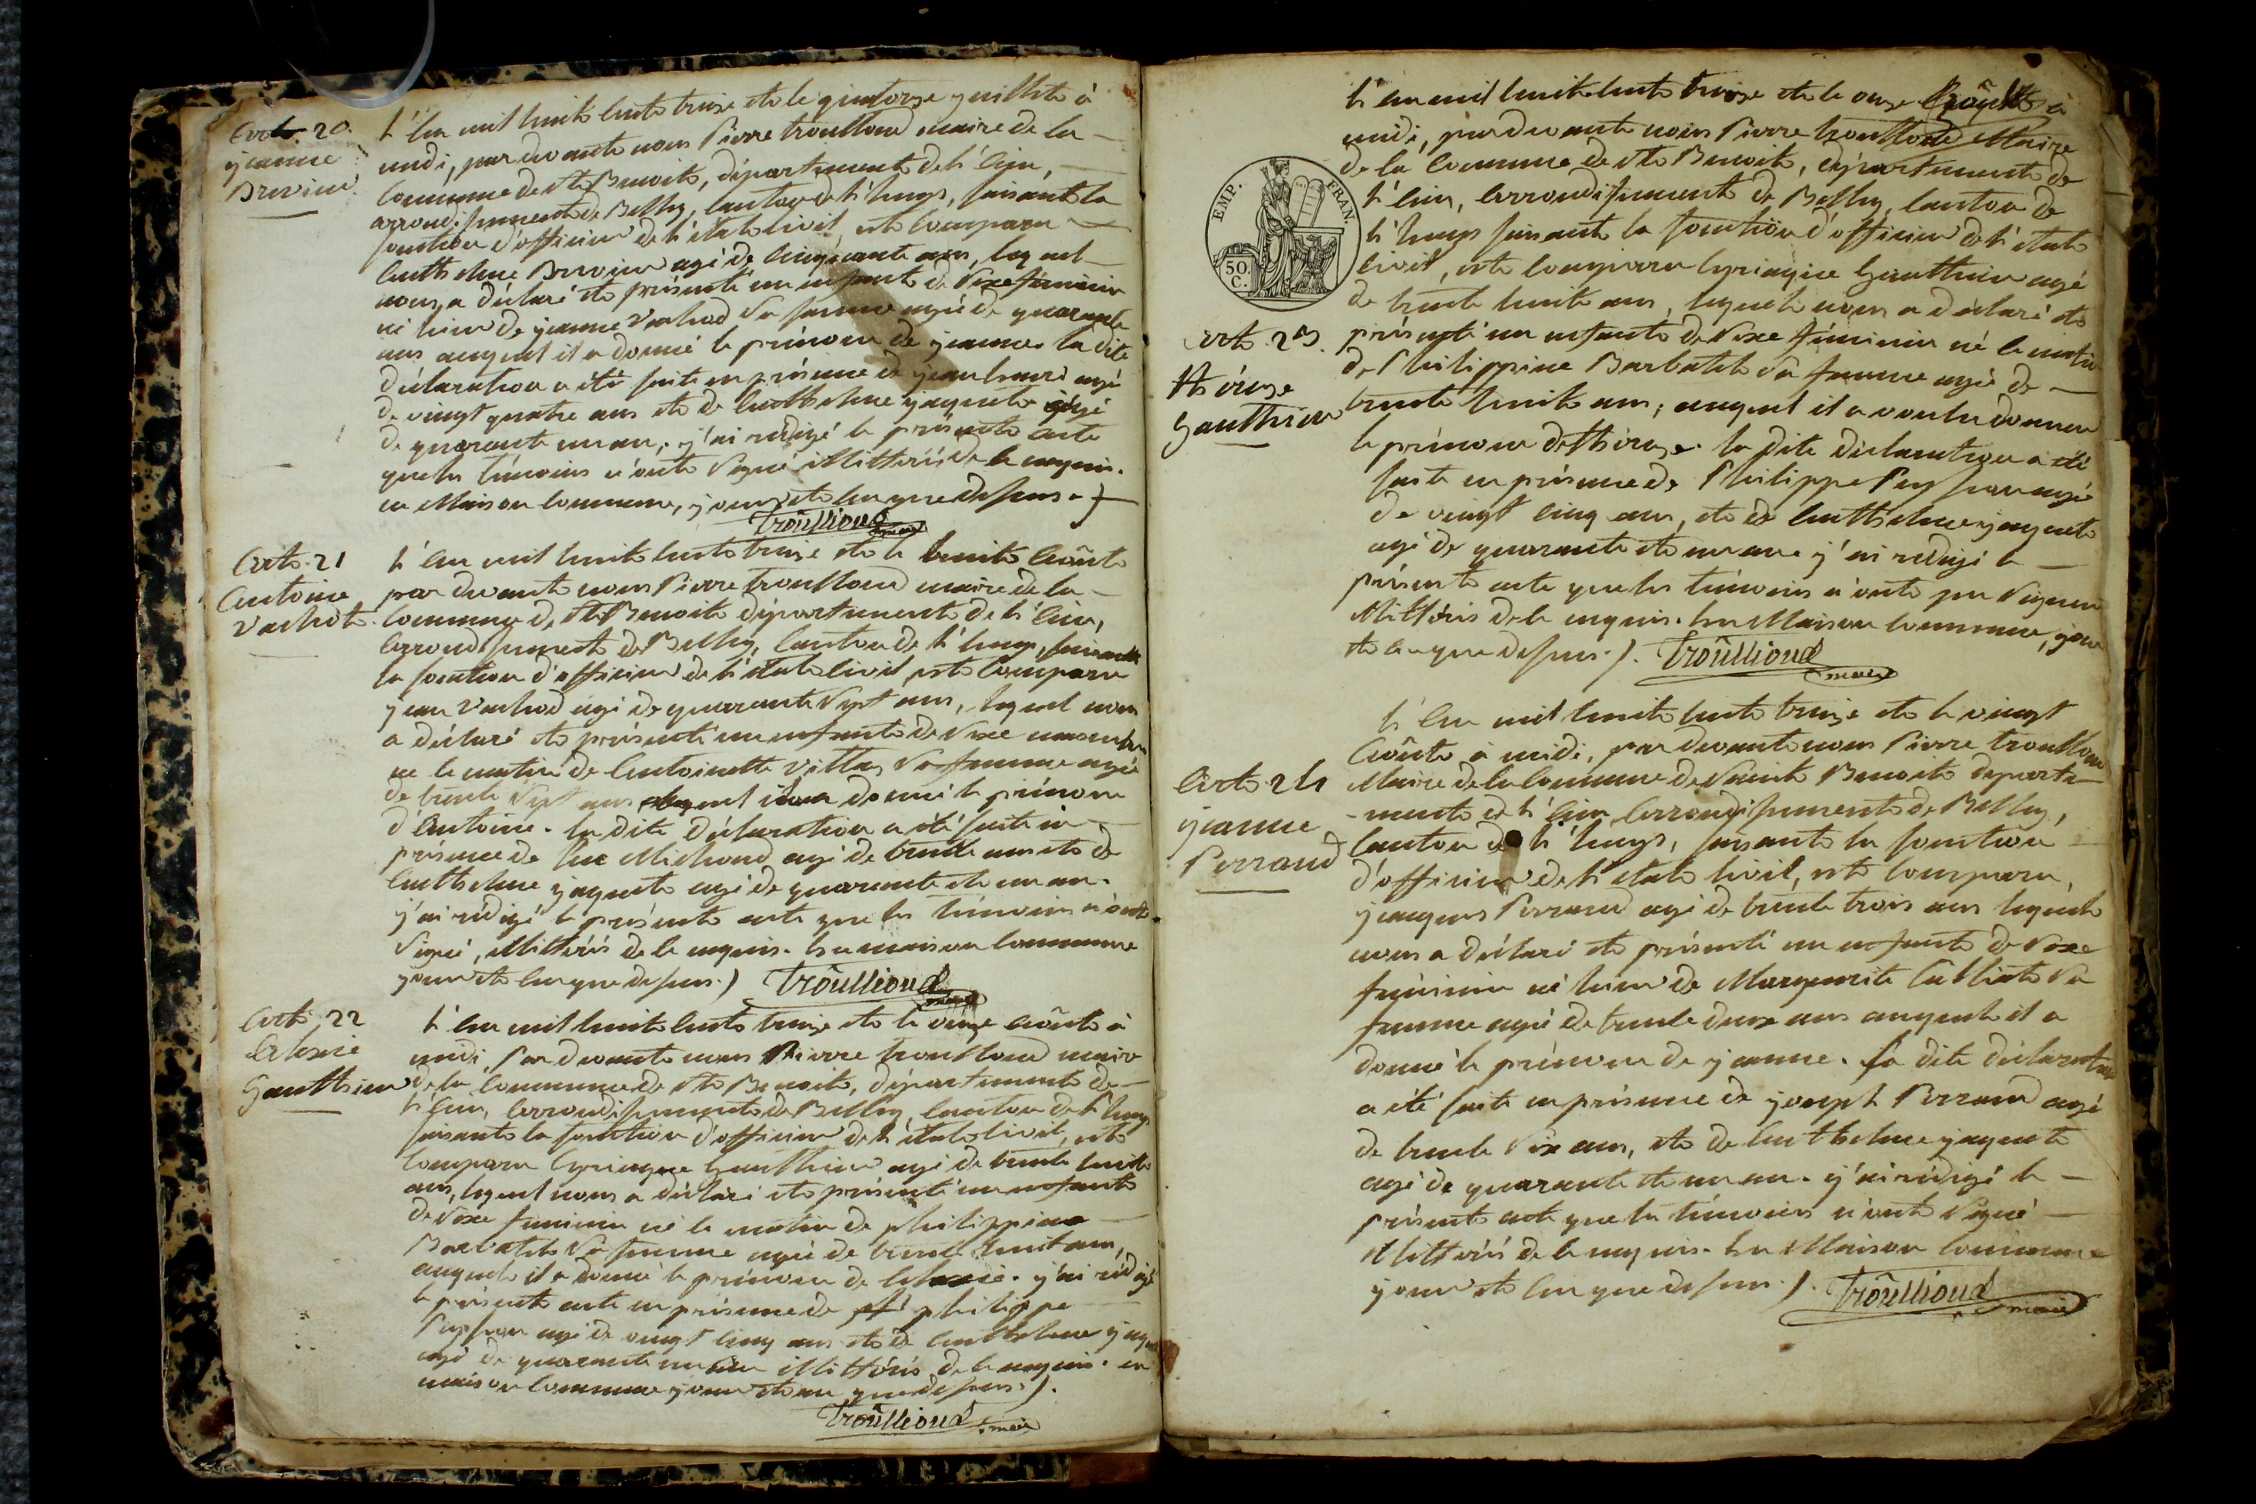 Acte 20.
Jeanne
Brevier
L'an mil huit cents treize et le quatorze juillet à
midi, par devants nous Pierre Troullioud maire de la
Commune de St Benoit, département de l'Ain,
arrondissement de Belley, canton de L'huys, faisant la
fonction d'officier de l'état civil, est comparu
Anthelme agé de cinquante ans, lequel
nous a déclaré et présenté un enfant de sexe féminin
né hier de Jeanne Vachod sa femme agée de quarante
ans auquel il a donné le prénom de Jeanne. la dite
déclaration a été faite en présence de Jean agé
de vingt quatre ans et de Anthelme Jaquet agé
de quarante un an. j'ai redigé le présent acte
que les témoins n'ont signé illittérés de le requis.
en Maison Commune, jour et an que dessus.
Troullioud
maire
Acte 21
Antoine
Vachot.
L'an mil huit cents treize et le trente Août
par devant nous Pierre Troullioud maire de la
Commune de St Benoit département de l'Ain,
arrondissement de Belley, Canton de L'huys, faisant
la fonction d'officier de l'état civil, est comparu
Jean Vachod agé de quarante sept ans, lequel nous
a déclaré et présenté un enfant de sexe masculin
né le matin de Antoinette Vittes sa femme agée
de trente sept ans auquel il a donné le prénom
d'Antoine. la dite déclaration a été faite en
présence de Michoud agé de trente ans et de
Anthelme Jaquet agé de quarante et un an.
j'ai rédigé le présent acte que les témoins n'ont
signé, illittérés de le requis. En maison Commune
jour et an que dessus.) Troullioud
maire
Acte 22
Alexie
Gauthier
L'an mil huit cents treize et le onze août à
midi, Par devant nous Pierre Troullioud maire
de la Commune de St Benoit, département de
l'Ain, arrondissement de Belley, Canton de L'huys
faisant la fonction d'officier de l'état civil, est
comparu Cyriaque Gauthier agé de trente huit
ans, lequel nous a déclaré et présenté un enfant
de sexe féminin né le matin de philippine
Barbatet sa femme agée de trente huit ans,
auquel il a donné le prénom de Alexie. j'ai rédigé
le présent acte en présence de philippe
agé de vingt cinq ans et de Anthelme Jaquet
agé de quarante un an illittérés de le requis. en
maison Commune jour et an que dessus.).
Troullioud maire
EMP. FRAN.
50.
C.
Acte 23.
Thérèse
Gauthier
L'an mil huit cents treize et le onze Août à
midi, par devant nous Pierre Troullioud Maire
de la Commune de St Benoit, département de
l'Ain, arrondissement de Belley, Canton de
L'huys faisant la fonction d'officier de l'état
civil, est comparu Cyriaque Gauthier agé
de trente huit ans, lequel nous a déclaré et
présenté un enfant de sexe féminin né le matin
de Philippine Barbatet sa femme agée de
trente huit ans; auquel il a voulu donner
le prénom de Thérèse. la dite déclaration a été
faite en présence de Philippe agé
de vingt cinq ans, et de Anthelme Jaquet
agé de quarante et un an. j'ai redigé le
présent acte que les témoins n'ont pu signer
illittérés de le requis. En Maison Commune, jour
et an que dessus.). Troullioud
maire
Acte 24
Jeanne
Perraud
L'an mil huit cents treize et le vingt
Août à midi, par devant nous Pierre Troullioud
Maire de la Commune de Saint Benoit départe-
-ment de l'Ain, arrondissement de Belley,
Canton de L'huys, faisant la fonction
d'officier de l'état civil, est comparu,
Jaques Perraud agé de trente trois ans lequel
nous a déclaré et présenté un enfant de sexe
féminin né hier de Marguerite sa
femme agée de trente deux ans auquel il a
donné le prénom de Jeanne. la dite déclaration
a été faite en présence de Joseph Perraud agé
de trente six ans, et de Anthelme Jaquet
agé de quarante et un an. j'ai rédigé le
présent acte que les témoins n'ont signé
illittérés de le requis. En Maison Commune
jour et an que dessus.). Troullioud
maire